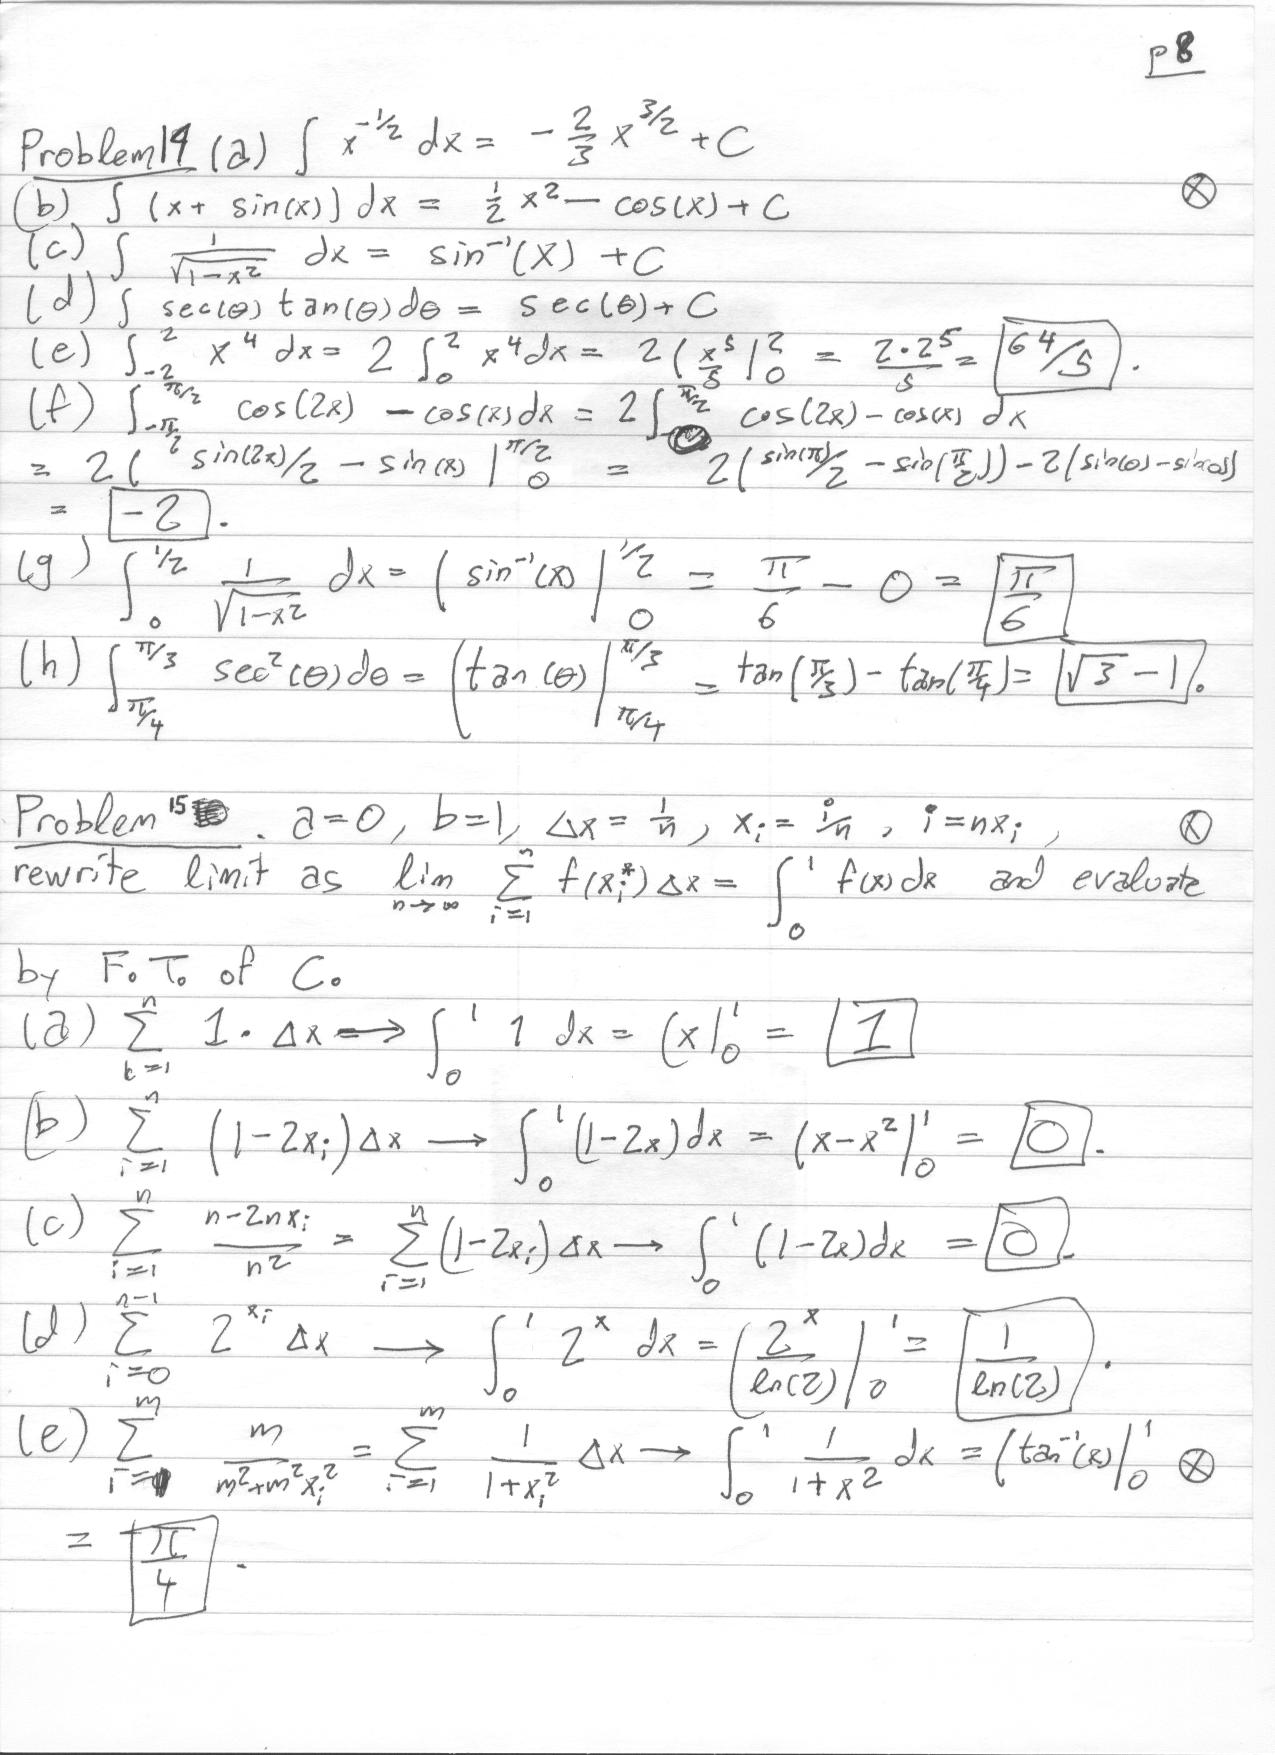 p 8
Problem 14 (a) ∫ x^{-1/2} dx = -2/3 x^{3/2} + C
(b) ∫ (x + sin(x)) dx = 1/2 x^2 - cos(x) + C ⊗
(c) ∫ 1/√(1-x^2) dx = sin^{-1}(x) + C
(d) ∫ sec(θ) tan(θ) dθ = sec(θ) + C
(e) ∫_{-2}^{2} x^4 dx = 2 ∫_0^2 x^4 dx = 2 (x^5/5 |_0^2 = 2·2^5/5 = 64/5.
(f) ∫_{-π/2}^{π/2} cos(2x) - cos(x) dx = 2 ∫_0^{π/2} cos(2x) - cos(x) dx
= 2 ( sin(2x)/2 - sin(x) |_0^{π/2} = 2 (sin(π)/2 - sin(π/2)) - 2 (sin(0) - sin(0))
= -2.
(g) ∫_0^{1/2} 1/√(1-x^2) dx = ( sin^{-1}(x) |_0^{1/2} = π/6 - 0 = π/6
(h) ∫_{π/4}^{π/3} sec^2(θ) dθ = ( tan(θ) |_{π/4}^{π/3} = tan(π/3) - tan(π/4) = √3 - 1.
Problem 15. a=0, b=1, Δx = 1/n, x_i = i/n, i = nx_i, ⊗
rewrite limit as lim_{n→∞} Σ_{i=1}^{n} f(x_i^*) Δx = ∫_0^1 f(x) dx and evaluate
by F.T. of C.
(a) Σ_{k=1}^{n} 1· Δx → ∫_0^1 1 dx = (x|_0^1 = 1
(b) Σ_{i=1}^{n} (1-2x_i) Δx → ∫_0^1 (1-2x) dx = (x-x^2|_0^1 = 0.
(c) Σ_{i=1}^{n} (n-2nx_i)/n^2 = Σ_{i=1}^{n} (1-2x_i) Δx → ∫_0^1 (1-2x) dx = 0.
(d) Σ_{i=0}^{n-1} 2^{x_i} Δx → ∫_0^1 2^x dx = ( 2^x/ln(2) |_0^1 = 1/ln(2).
(e) Σ_{i=1}^{m} m/(m^2+m^2x_i^2) = Σ_{i=1}^{m} 1/(1+x_i^2) Δx → ∫_0^1 1/(1+x^2) dx = (tan^{-1}(x)|_0^1 ⊗
= π/4.